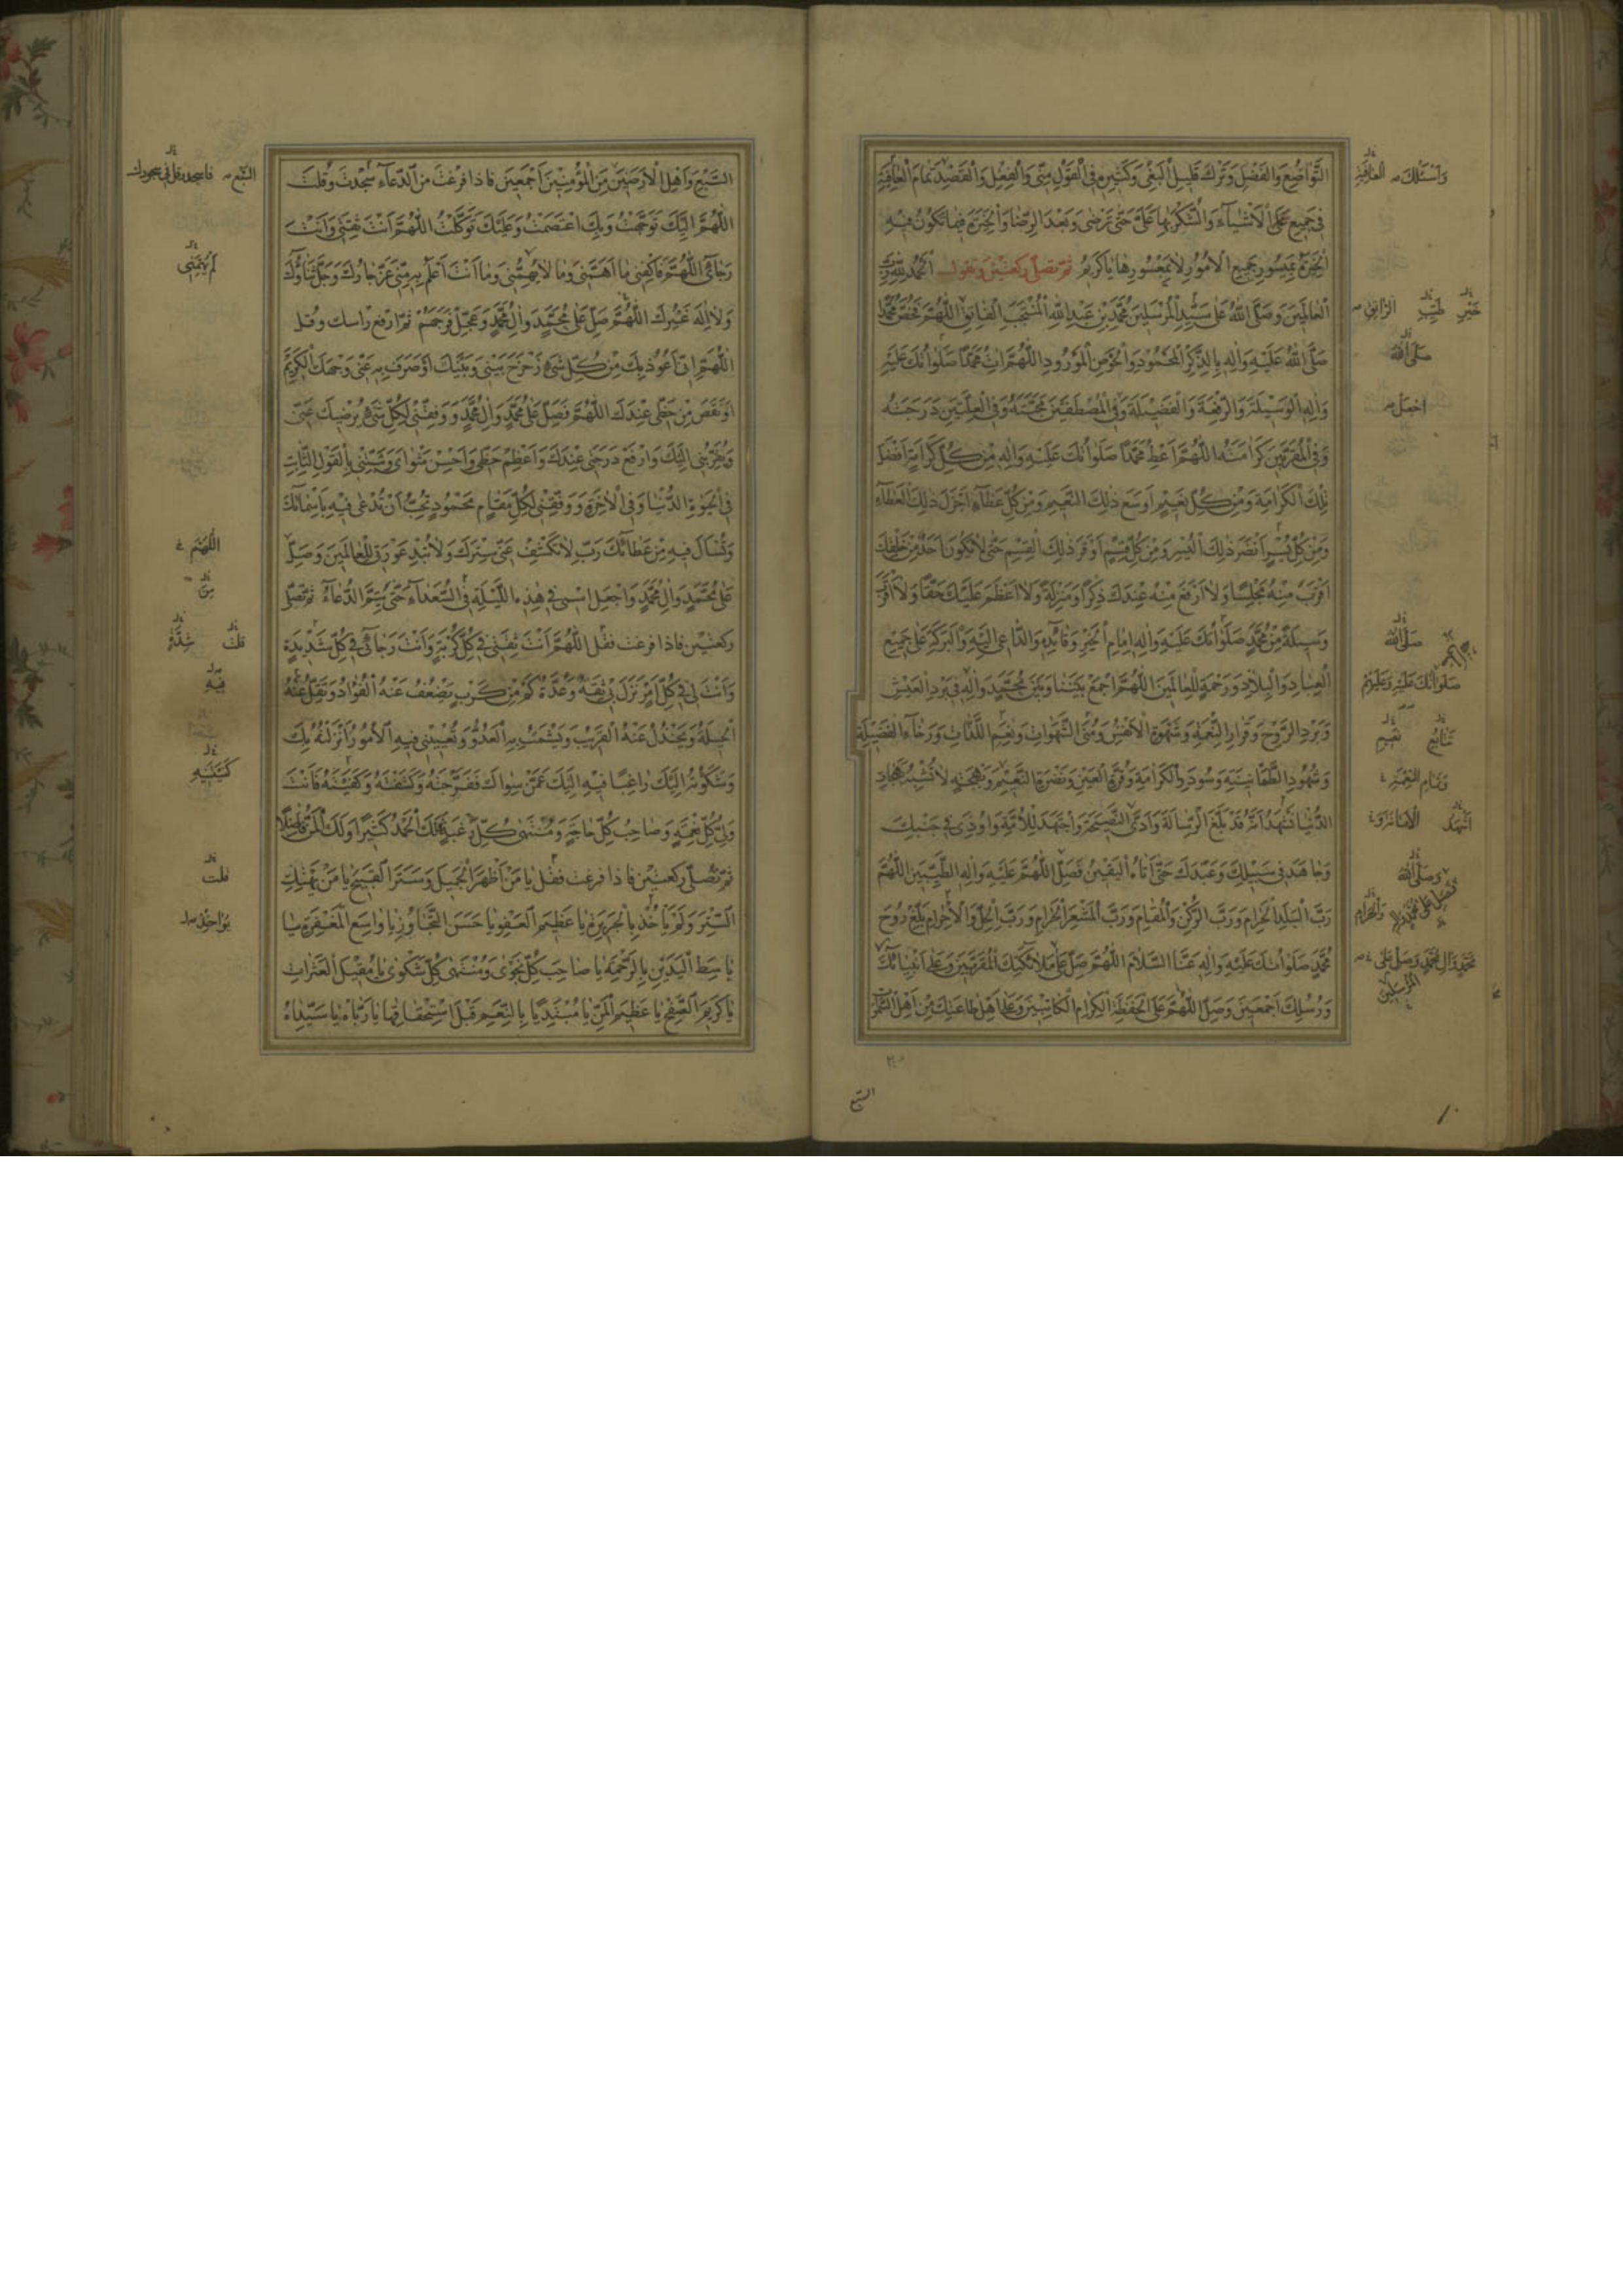 التَّوَاضُعَ وَالْفَضْلَ وَتَرْكَ قَلِيلِ الْبَغْيِ وَكَثِيرِهِ فِي الْقَوْلِ مِنِّي وَالْفِعْلِ وَالْقَصْدِ تَمَامَ الْعَافِيَةِ
فِي جَمِيعِ الْأَشْيَاءِ وَالشُّكْرَ بِهَا عَلَيَّ حَتَّى تَرْضَى وَبَعْدَ الرِّضَا وَالْخِيَرَةَ فِيمَا تَكُونُ فِيهِ
الْخِيَرَةُ بِمَيْسُورِ جَمِيعِ الْأُمُورِ لَا بِمَعْسُورِهَا يَا كَرِيمُ ثُمَّ تُصَلِّي رَكْعَتَيْنِ وَتَقُولُ الْحَمْدُ لِلَّهِ رَبِّ
الْعَالَمِينَ وَصَلَّى اللَّهُ عَلَى سَيِّدِ الْمُرْسَلِينَ مُحَمَّدِ بْنِ عَبْدِ اللَّهِ الْمُنْتَجَبِ الْفَاتِقِ اللَّهُمَّ فَخُصَّ مُحَمَّدًا
صَلَّى اللَّهُ عَلَيْهِ وَآلِهِ بِالذِّكْرِ الْمَحْمُودِ وَالْحَوْضِ الْمَوْرُودِ اللَّهُمَّ آتِ مُحَمَّدًا صَلَوَاتُكَ عَلَيْهِ
وَآلِهِ الْوَسِيلَةَ وَالرِّفْعَةَ وَالْفَضِيلَةَ وَفِي الْمُصْطَفَيْنَ مَحَبَّتَهُ وَفِي الْعِلِّيِّينَ دَرَجَتَهُ
وَفِي الْمُقَرَّبِينَ كَرَامَتَهُ اللَّهُمَّ أَعْطِ مُحَمَّدًا صَلَوَاتُكَ عَلَيْهِ وَآلِهِ مِنْ كُلِّ كَرَامَةٍ أَفْضَلَ
تِلْكَ الْكَرَامَةِ وَمِنْ كُلِّ نَعِيمٍ أَوْسَعَ ذَلِكَ النَّعِيمِ وَمِنْ كُلِّ عَطَاءٍ أَجْزَلَ ذَلِكَ الْعَطَاءِ
وَمِنْ كُلِّ يُسْرٍ أَنْضَرَ ذَلِكَ الْيُسْرِ وَمِنْ كُلِّ قِسْمٍ أَوْفَرَ ذَلِكَ الْقِسْمِ حَتَّى لَا يَكُونَ أَحَدٌ مِنْ خَلْقِكَ
أَقْرَبَ مِنْهُ مَجْلِسًا وَلَا أَرْفَعَ مِنْهُ عِنْدَكَ ذِكْرًا وَمَنْزِلَةً وَلَا أَعْظَمَ عَلَيْكَ حَقًّا وَلَا أَقْرَبَ
وَسِيلَةً مِنْ مُحَمَّدٍ صَلَوَاتُكَ عَلَيْهِ وَآلِهِ إِمَامِ الْخَيْرِ وَقَائِدِهِ وَالدَّاعِي إِلَيْهِ وَالْبَرَكَةِ عَلَى جَمِيعِ
الْعِبَادِ وَالْبِلَادِ وَرَحْمَةٍ لِلْعَالَمِينَ اللَّهُمَّ اجْمَعْ بَيْنَنَا وَبَيْنَ مُحَمَّدٍ وَآلِهِ فِي بَرْدِ الْعَيْشِ
وَبَرْدِ الرَّوْحِ وَقَرَارِ النِّعْمَةِ وَشَهْوَةِ الْأَنْفُسِ وَمُنَى الشَّهَوَاتِ وَنَعِيمِ اللَّذَّاتِ وَرَخَاءِ الْفَضِيلَةِ
وَشُهُودِ الطُّمَأْنِينَةِ وَسُودَدِ الْكَرَامَةِ وَقُرَّةِ الْعَيْنِ وَنَضْرَةِ النَّعِيمِ وَبَهْجَةٍ لَا تُشْبِهُ بَهَجَاتِ
الدُّنْيَا نَشْهَدُ أَنَّهُ قَدْ بَلَّغَ الرِّسَالَةَ وَأَدَّى النَّصِيحَةَ وَاجْتَهَدَ لِلْأُمَّةِ وَأُوذِيَ فِي جَنْبِكَ
وَجَاهَدَ فِي سَبِيلِكَ وَعَبَدَكَ حَتَّى أَتَاهُ الْيَقِينُ فَصَلِّ اللَّهُمَّ عَلَيْهِ وَآلِهِ الطَّيِّبِينَ اللَّهُمَّ
رَبَّ الْبَلَدِ الْحَرَامِ وَرَبَّ الرُّكْنِ وَالْمَقَامِ وَرَبَّ الْمَشْعَرِ الْحَرَامِ وَرَبَّ الْحِلِّ وَالْإِحْرَامِ بَلِّغْ رُوحَ
مُحَمَّدٍ صَلَوَاتُكَ عَلَيْهِ وَآلِهِ عَنَّا السَّلَامَ اللَّهُمَّ صَلِّ عَلَى مَلَائِكَتِكَ الْمُقَرَّبِينَ وَعَلَى أَنْبِيَائِكَ
وَرُسُلِكَ أَجْمَعِينَ وَصَلِّ اللَّهُمَّ عَلَى الْحَفَظَةِ الْكِرَامِ الْكَاتِبِينَ وَعَلَى أَهْلِ طَاعَتِكَ مِنْ أَهْلِ السَّمٰوَاتِ
وَأَسْئَلُكَ الْعَافِيَةِ
خَيْرِ طَيِّبِ الرَّاتِقِ
صَلَّى اللَّهُ
اجْعَلْ
صَلَّى اللَّهُ
صَلَوَاتُكَ عَلَيْهِ وَعَلَيْهِمْ
نَعِيمِ
وَتَمَامِ النِّعْمَةِ
اشْهَدُ الْأَمَانَةَ وَ
وَصَلَّى اللَّهُ
وَالْحَرَامِ
مُحَمَّدٍ وَآلِ مُحَمَّدٍ وَصَلِّ عَلَى
الْمُرْسَلِينَ
السَّبْعِ
السَّبْعِ وَأَهْلِ الْأَرَضِينَ مِنَ الْمُؤْمِنِينَ أَجْمَعِينَ فَإِذَا فَرَغْتَ مِنَ الدُّعَاءِ سَجَدْتَ وَقُلْتَ
اللَّهُمَّ إِلَيْكَ تَوَجَّهْتُ وَبِكَ اعْتَصَمْتُ وَعَلَيْكَ تَوَكَّلْتُ اللَّهُمَّ أَنْتَ ثِقَتِي وَأَنْتَ
رَجَائِي اللَّهُمَّ فَاكْفِنِي مَا أَهَمَّنِي وَمَا لَا يُهِمُّنِي وَمَا أَنْتَ أَعْلَمُ بِهِ مِنِّي عَزَّ جَارُكَ وَجَلَّ ثَنَاؤُكَ
وَلَا إِلَهَ غَيْرُكَ اللَّهُمَّ صَلِّ عَلَى مُحَمَّدٍ وَآلِ مُحَمَّدٍ وَعَجِّلْ فَرَجَهُمْ ثُمَّ ارفع راسك وقل
اللَّهُمَّ إِنِّي أَعُوذُ بِكَ مِنْ كُلِّ شَيْءٍ زَحْزَحَ بَيْنِي وَبَيْنَكَ أَوْ صَرَفَ بِهِ عَنِّي وَجْهَكَ الْكَرِيمَ
أَوْ نَقَصَ مِنْ حَظِّي عِنْدَكَ اللَّهُمَّ فَصَلِّ عَلَى مُحَمَّدٍ وَآلِ مُحَمَّدٍ وَوَفِّقْنِي لِكُلِّ شَيْءٍ يُرْضِيكَ عَنِّي
وَيُقَرِّبُنِي إِلَيْكَ وَارْفَعْ دَرَجَتِي عِنْدَكَ وَأَعْظِمْ حَظِّي وَأَحْسِنْ مَثْوَايَ وَثَبِّتْنِي بِالْقَوْلِ الثَّابِتِ
فِي الْحَيٰوةِ الدُّنْيَا وَفِي الْآخِرَةِ وَوَفِّقْنِي لِكُلِّ مَقَامٍ مَحْمُودٍ تُحِبُّ أَنْ تُدْعَى فِيهِ بِأَسْمَائِكَ
وَتُسْأَلَ فِيهِ مِنْ عَطَائِكَ رَبِّ لَا تَكْشِفْ عَنِّي سِتْرَكَ وَلَا تُبْدِ عَوْرَتِي لِلْعَالَمِينَ وَصَلِّ
عَلَى مُحَمَّدٍ وَآلِ مُحَمَّدٍ وَاجْعَلِ اسْمِي فِي هَذِهِ اللَّيْلَةِ فِي السُّعَدَاءِ حَتَّى يُتِمَّ الدُّعَاءَ ثُمَّ تُصَلِّي
ركعتين فاذا فرغت فقل اللَّهُمَّ أَنْتَ ثِقَتِي فِي كُلِّ كُرْبَةٍ وَأَنْتَ رَجَائِي فِي كُلِّ شَدِيدَةٍ
وَأَنْتَ لِي فِي كُلِّ أَمْرٍ نَزَلَ بِي ثِقَةٌ وَعُدَّةٌ كَمْ مِنْ كَرْبٍ يَضْعُفُ عَنْهُ الْفُؤَادُ وَتَقِلُّ عَنْهُ
الْحِيلَةُ وَيَخْذُلُ عَنْهُ الْقَرِيبُ وَيَشْمَتُ بِهِ الْعَدُوُّ وَتُعْيِينِي فِيهِ الْأُمُورُ أَنْزَلْتُهُ بِكَ
وَشَكَوْتُهُ إِلَيْكَ رَاغِبًا فِيهِ إِلَيْكَ عَمَّنْ سِوَاكَ فَفَرَّجْتَهُ وَكَشَفْتَهُ وَكَفَيْتَهُ فَأَنْتَ
وَلِيُّ كُلِّ نِعْمَةٍ وَصَاحِبُ كُلِّ حَاجَةٍ وَمُنْتَهَى كُلِّ رَغْبَةٍ فَلَكَ الْحَمْدُ كَثِيرًا وَلَكَ الْمَنُّ فَاضِلًا
ثُمَّ تُصَلِّي رَكْعَتَيْنِ فاذا فرغت فقل يَا مَنْ أَظْهَرَ الْجَمِيلَ وَسَتَرَ الْقَبِيحَ يَا مَنْ لَمْ يَهْتِكِ
السِّتْرَ وَلَمْ يَأْخُذْ بِالْجَرِيرَةِ يَا عَظِيمَ الْعَفْوِ يَا حَسَنَ التَّجَاوُزِ يَا وَاسِعَ الْمَغْفِرَةِ يَا
بَاسِطَ الْيَدَيْنِ بِالرَّحْمَةِ يَا صَاحِبَ كُلِّ نَجْوَى وَمُنْتَهَى كُلِّ شَكْوَى يَا مُقِيلَ الْعَثَرَاتِ
يَا كَرِيمَ الصَّفْحِ يَا عَظِيمَ الْمَنِّ يَا مُبْتَدِيًا بِالنِّعَمِ قَبْلَ اسْتِحْقَاقِهَا يَا رَبَّاهُ يَا سَيِّدَاهُ
السَّبْعِ فاسجد وقل في سجودك
لَمْ يُهِمَّنِي
اللَّهُمَّ
مِنْ
قلت شِدَّةٍ
فِيهِ
كَفَيْتَنِيهِ
قلت
يؤاخِذْ